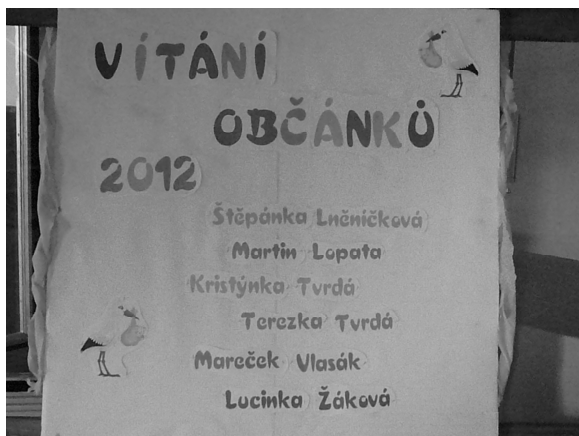 VÍTÁNÍ
OBČÁNKŮ
2012
Štěpánka Lněničková
Martin Lopata
Kristýnka Tvrdá
Terezka Tvrdá
Mareček Vlasák
Lucinka Žáková